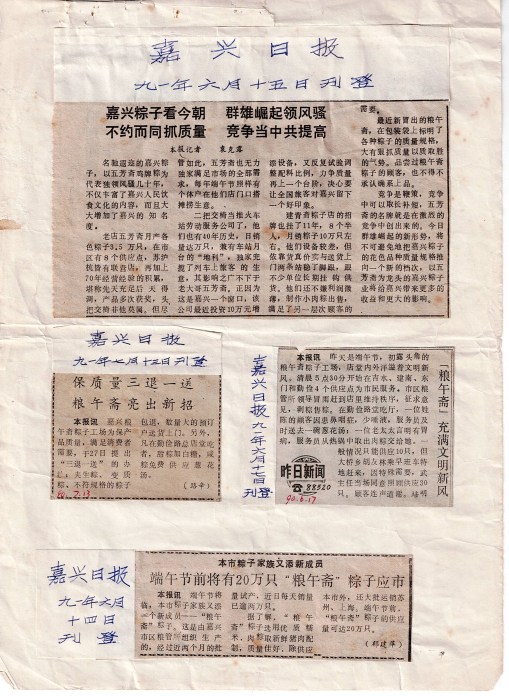 嘉兴日报
九一年六月十五日刊登
嘉兴粽子看今朝 群雄崛起领风骚
不约而同抓质量 竞争当中共提高
本报记者 袁克露
名驰遐迩的嘉兴粽
子，以五芳斋鸡牌粽为
代表独领风骚几十年，
不仅丰富了嘉兴人民饮
食文化的内容，而且大
大增加了嘉兴的知名
度。
老店五芳斋月产各
色粽子3.5万只，在市
区有8个供应点，苏沪
杭皆有联营店，再加上
70年经营经验的积累，
堪称先天充足后天得
，产品多次获奖，头
把交椅非他莫属。但尽
管如此，五芳斋也无力
独家满足市场的全部需
求，每年端午节照样有
个体户在他们店门口搭
摊捞生意。
二把交椅当推火车
站劳动服务公司了，他
们也有40年历史，日销
量达万只，兼有车站月
台的“地利”，独家兜
揽了列车上旅客的生
意，其影响之广不下于
老大哥五芳斋。正因为
这是嘉兴一个窗口，该
公司最近投资10万元增
添设备，又反复试验调
整配料比例，力争质量
再上一个台阶，决心要
让全国旅客对嘉兴留下
一个好印象。
斋粽子店的招
牌也挂了11年，8个半
人，月销粽子10万只左
右。他们设备较差，但
依靠货真价实与送货上
门两条站稳了脚跟，跟
不少单位长期挂钩供
货。他们还不嫌利润微
薄，制作小肉粽出售，
满足了另一层次顾客的
需要。
最近新冒出的粮午
斋，在包装袋上标明了
各种粽子的质量规格，
大有狠抓质量以质取胜
的气势。品尝过粮午斋
粽子的顾客，也不得不
承认确系上品。
竞争是鞭策，竞争
中可以取长补短，五芳
斋的名牌就是在激烈的
竞争中创出来的。今日
群雄崛起的新形势，将
不可避免地把嘉兴粽子
的花色品种质量规格推
向一个新的档次，以五
芳斋为龙头的嘉兴粽子
业将给嘉兴带来更多的
收益和更大的影响。
嘉兴日报
九一年七月十三日刊登
保质量三退一送
粮午斋亮出新招
本报讯 市区粮午
斋粽子工场为保产
品质量，满足消费者
需要，于27日提出
“三退一送”的办
法：夹生粽、变质
粽、不符规格的粽子
包退，数量大的预订
户送货上门。另外，
凡在勤俭路总店堂吃
者，甜粽加白糖，咸
粽免费供应葱花
汤。
91.7.13
嘉兴日报九一年六月十七日
刊登
“粮午斋”充满文明新风
本报讯 昨天是端午节，初露头角的
粮午斋粽子工场，店堂内外洋溢着文明新
风。清晨5点30分开始在吉水、建南、东
门和勤俭4个供应点为市民服务。市区粮
管所领导冒雨赶到店里维持秩序，征求意
见，剥粽售粽。在勤俭路堂吃厅，一位姓
陈的顾客因患鼻咽症，少唾液，服务员及
时送去一碗葱花汤；一位老太太言明有胃
病，服务员从热锅中取出肉粽交给她。一
般情况只能供应10只，但
大桥乡胡友林乘早班车特
地赶来，因特殊需要，武
主任当场同意照顾供应30
只。顾客连声道谢，
昨日新闻
☎88520
91.6.17
嘉兴日报
九一年六月
十四日
刊登
本市粽子家族又添新成员
端午节前将有20万只“粮午斋”粽子应市
本报讯 端午节将
临，本市粽子家族又添
一个新成员——“粮午
斋”粽子。这是由嘉兴
市区粮管所组织生产
的，经过近两个月的批
量试产，近日每天销量
已逾两万只。
据了解，“粮午
斋”粽子选用优质糯
米，肉粽取新鲜猪肉配
制，质量佳好，除供应
本市外，还大批运销苏
州、上海。端午节前，
“粮午斋”粽子的供应
量可达20万只。
（郭建萍）